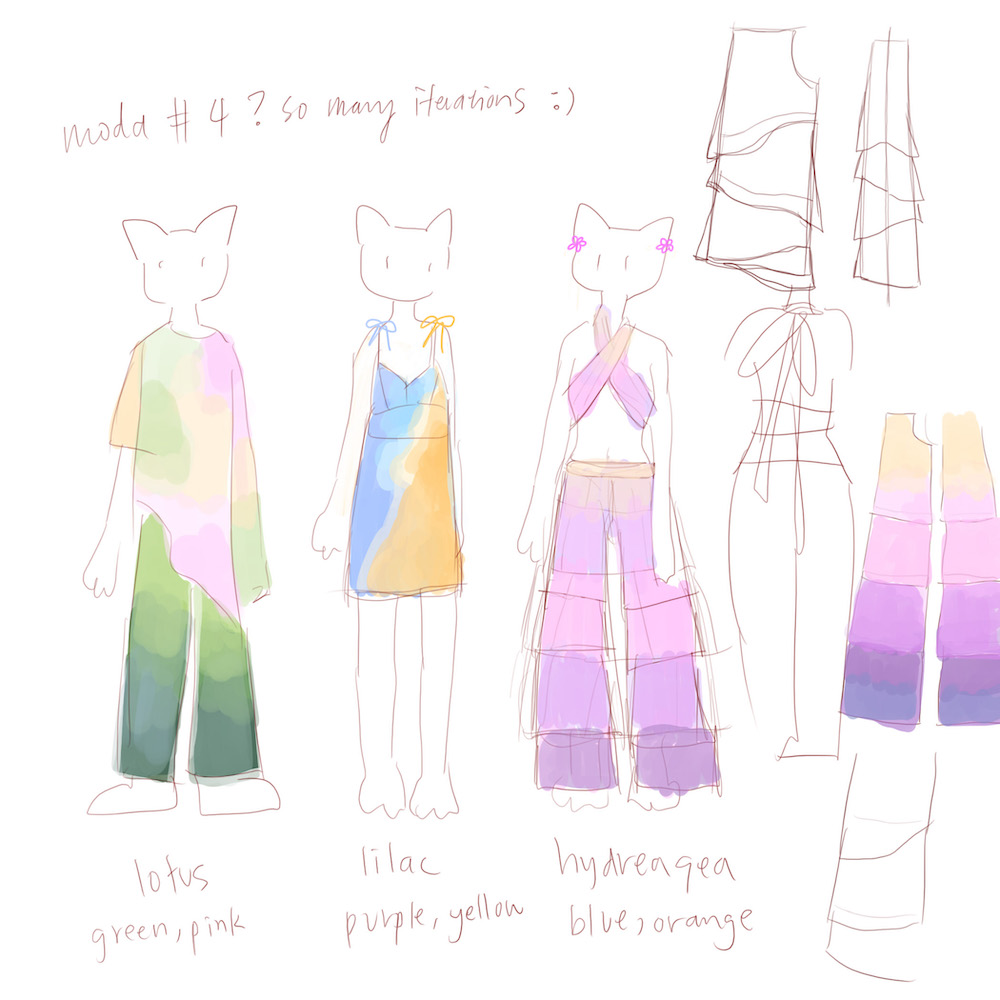 moda # 4 ? so many iterations :)
lotus
green, pink
lilac
purple, yellow
hydreagea
blue, orange